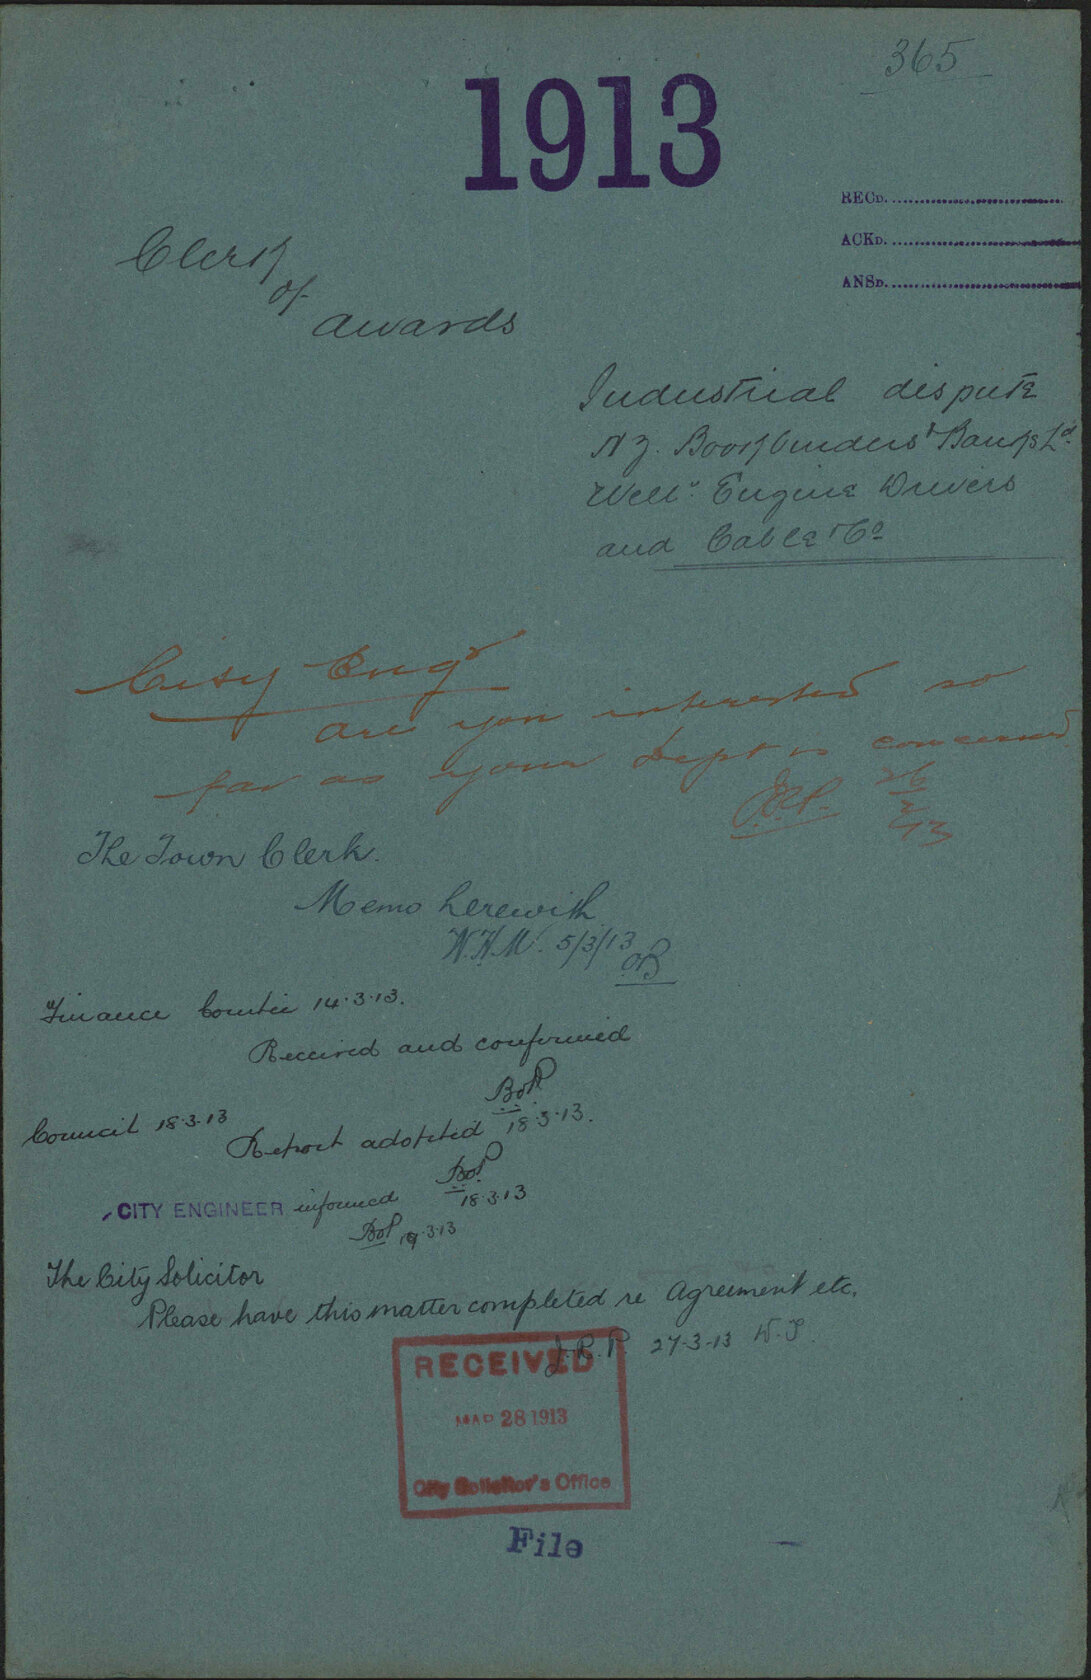 365
1913
RECD.
ACKD.
ANSD.
Clerk
of
awards
Industrial dispute
N Z. Bookbinders' Ld.
Well: Engine Drivers
and Cable Co
City Engr
are you interested so
far as your Dept is concerned
J.R.P. 26/2/13
The Town Clerk.
Memo herewith
W.H.M. 5/3/13
Finance Comtee 14.3.13.
Received and confirmed
18.3.13.
Council 18.3.13
Report adopted
18.3.13
CITY ENGINEER informed
19.3.13
The City Solicitor
Please have this matter completed re Agreement etc.
J.R.P. 27-3-13
RECEIVED
MAR 28 1913
City Solicitor's Office
File